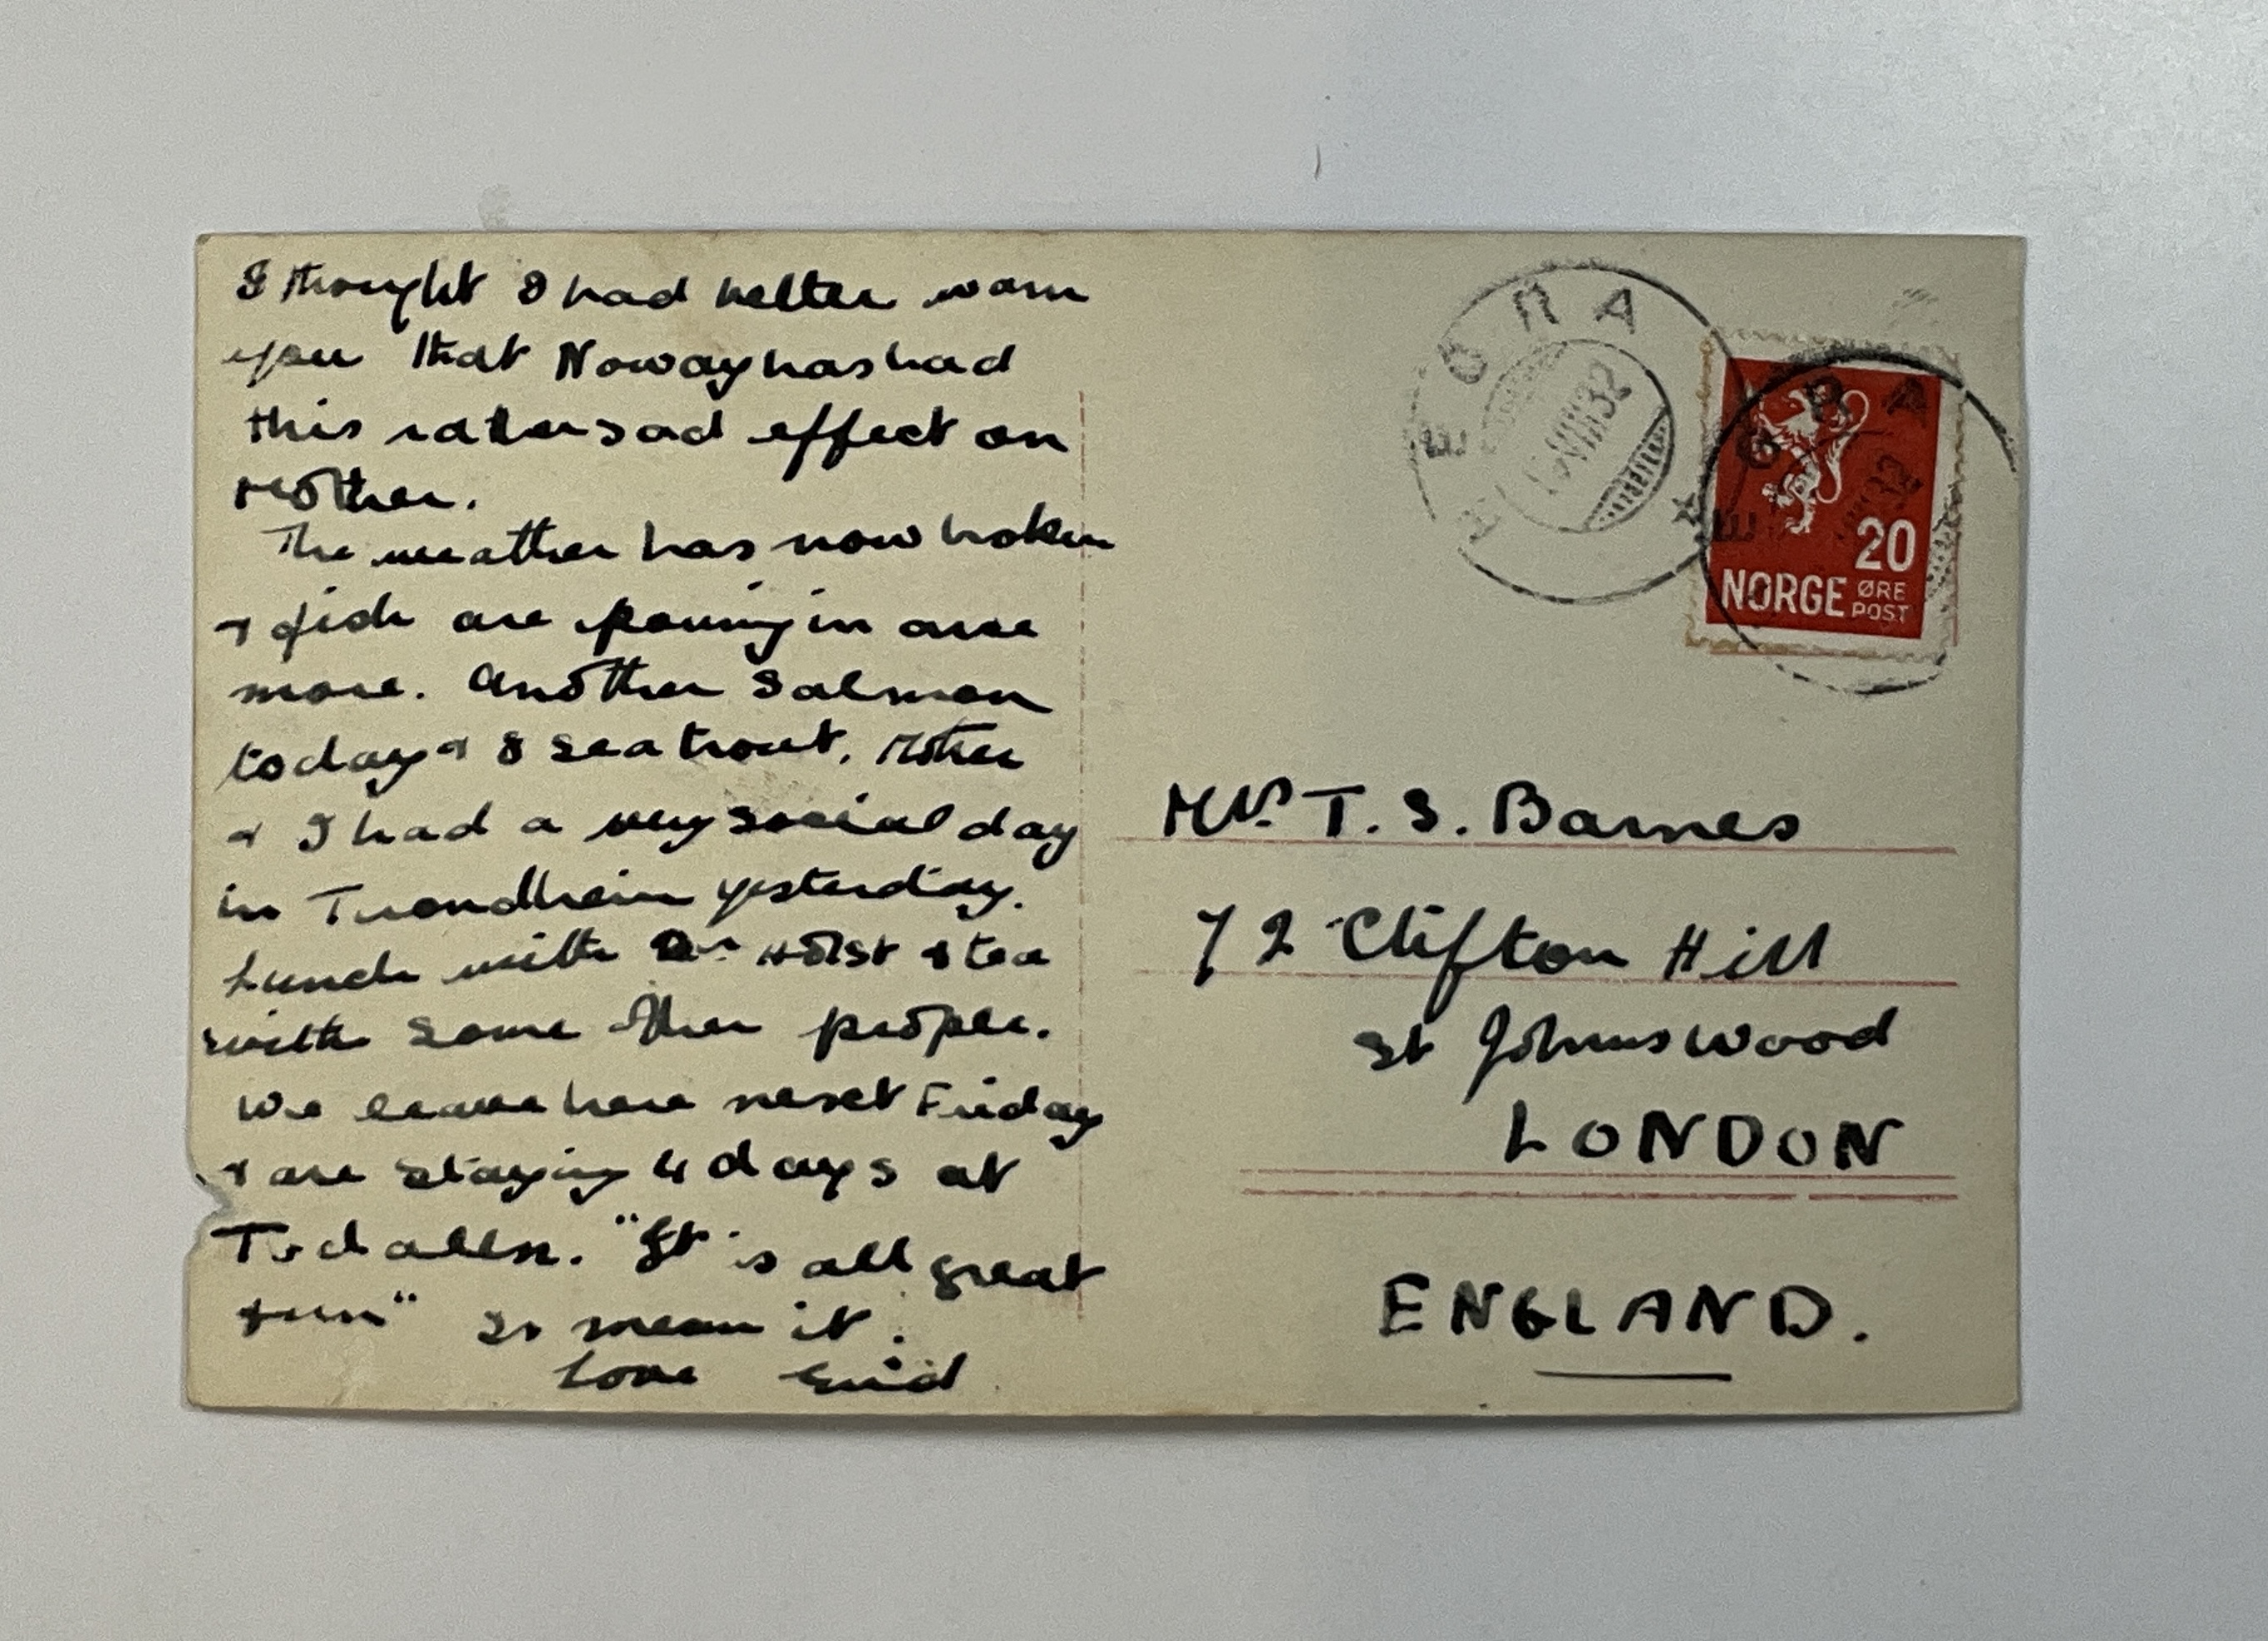 I thought I had better warn
you that Norway has had
this rather sad effect on
Mother.
The weather has now broken
& fish are pouring in once
more. Another Salmon
today & 8 sea trout. Mother
& I had a very social day
in Trondheim yesterday.
Lunch with Dr Holst & tea
with some other people.
We leave here next Friday
& are staying 4 days at
"It is all great
fun" so mean it.
Love Enid
HEGRA
VIII 32
HEGRA
20
NORGE ØRE
POST
Mrs. T. S. Barnes
72 Clifton Hill
St Johns Wood
LONDON
ENGLAND.